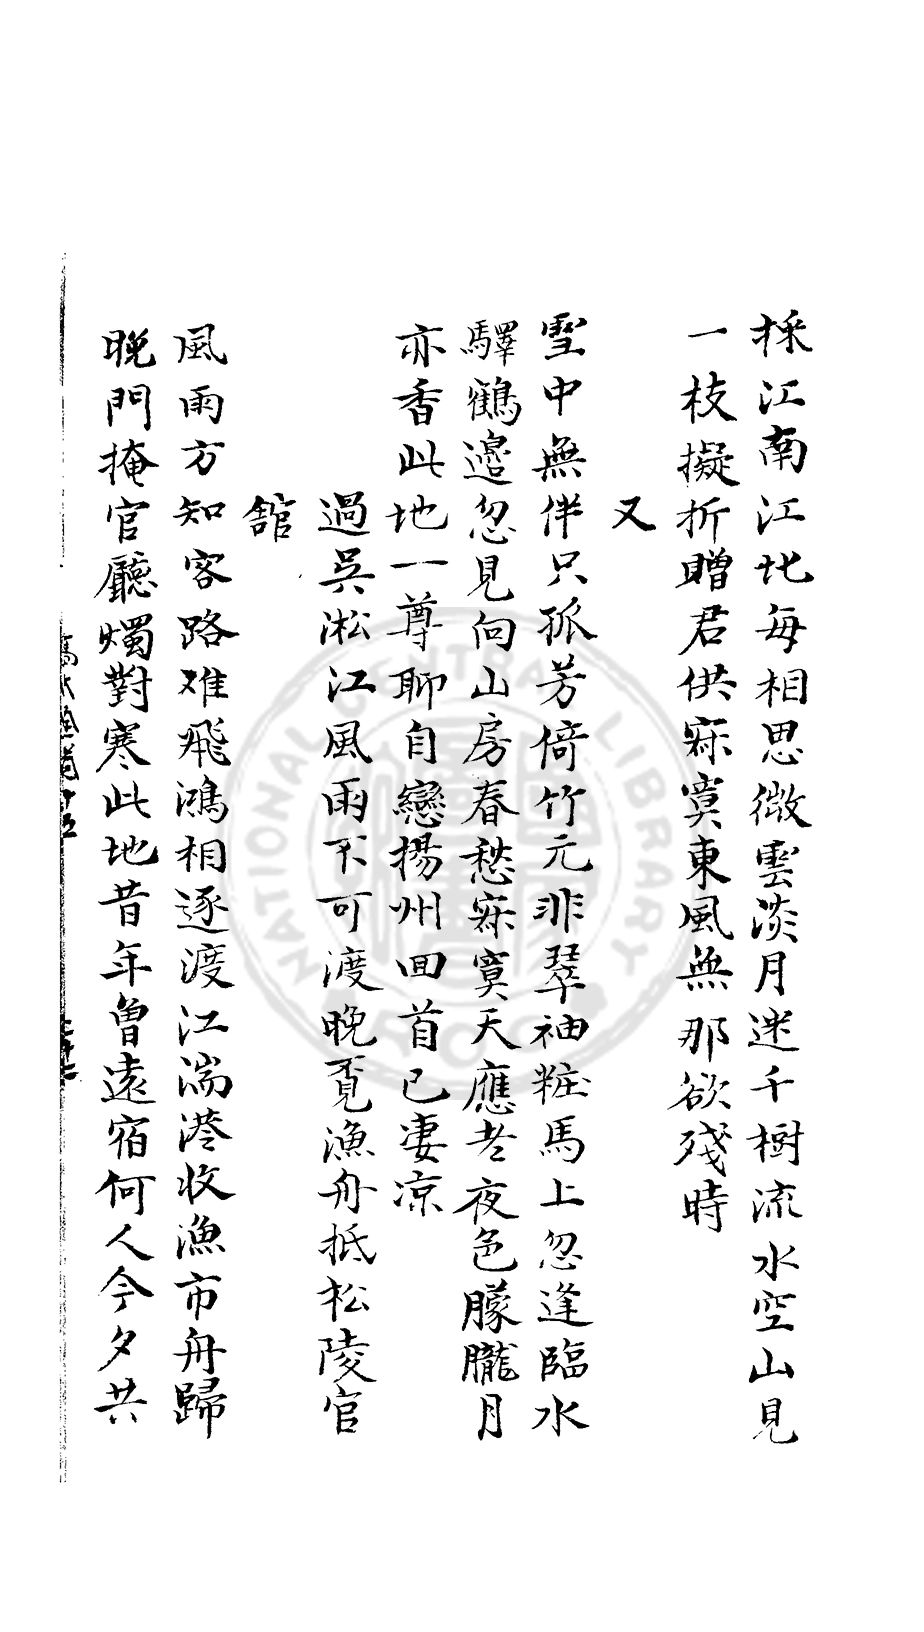 採江南江北每相思微雲淡月迷千樹流水空山見
一枝擬折贈君供寂寞東風無那欲殘時
又
雪中無伴只孤芳倚竹元非翠袖粧馬上忽逢臨水
驛鶴邉忽見向山房春愁寂寞天應老夜色朦朧月
亦香此地一尊聊自戀揚州回首已凄凉
過吳淞江風雨不可渡晚覓漁舟抵松陵官
舘
風雨方知客路难飛鴻相逐渡江湍港收漁市舟歸
晚門掩官廳燭對寒此地昔年曾遠宿何人今夕共
NATIONAL CENTRAL LIBRARY